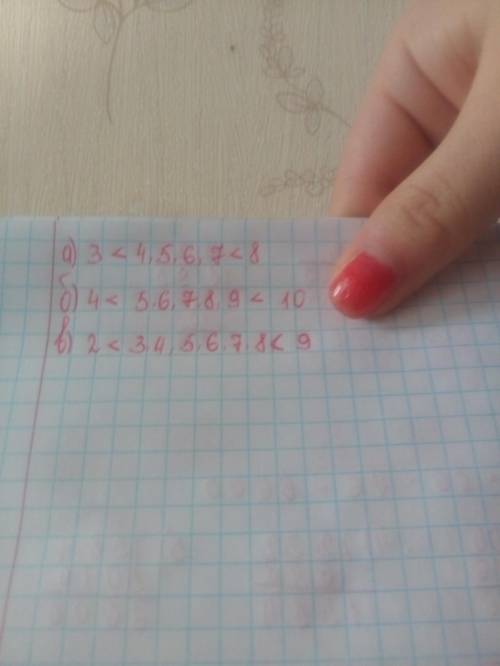 а) 3 < 4, 5, 6, 7 < 8
б) 4 < 5, 6, 7, 8, 9 < 10
в) 2 < 3, 4, 5, 6, 7, 8 < 9